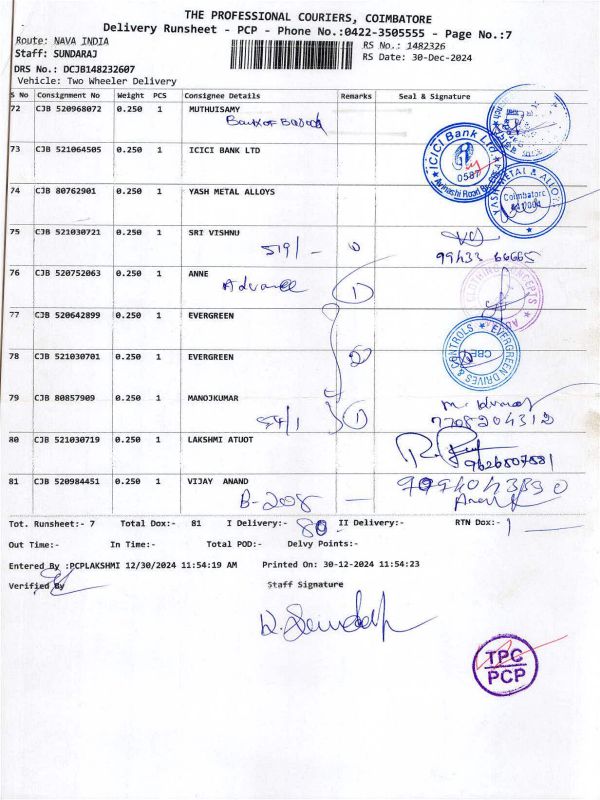 THE PROFESSIONAL COURIERS, COIMBATORE
Delivery Runsheet - PCP - Phone No.:0422-3505555 - Page No.:7
Route: NAVA INDIA
RS No.: 1482326
Staff: SUNDARAJ
RS Date: 30-Dec-2024
DRS No.: DCJB148232607
Vehicle: Two Wheeler Delivery
S No Consignment No Weight PCS Consignee Details Remarks Seal & Signature
72 CJB 520968072 0.250 1 MUTHUISAMY
Bank of Baroda
73 CJB 521064505 0.250 1 ICICI BANK LTD
ICICI Bank Ltd
0587
Avinashi Road
74 CJB 80762901 0.250 1 YASH METAL ALLOYS
YASH METAL & ALLOYS
Coimbatore
75 CJB 521030721 0.250 1 SRI VISHNU
519/-
99433 66665
76 CJB 520752063 0.250 1 ANNE
Advance 1
CONCEPTS
77 CJB 520642899 0.250 1 EVERGREEN
EVERGREEN DRIVES & CONTROLS
CBE
78 CJB 521030701 0.250 1 EVERGREEN
2
79 CJB 80857909 0.250 1 MANOJKUMAR
54/1 1
M. Kumar
7708204312
80 CJB 521030719 0.250 1 LAKSHMI ATUOT
81 CJB 520984451 0.250 1 VIJAY ANAND
B-208
Tot. Runsheet:- 7 Total Dox:- 81 I Delivery:- 80 II Delivery:- RTN Dox:- 1
Out Time:- In Time:- Total POD:- Delvy Points:-
Entered By :PCPLAKSHMI 12/30/2024 11:54:19 AM Printed On: 30-12-2024 11:54:23
Verified By Staff Signature
TPC
PCP